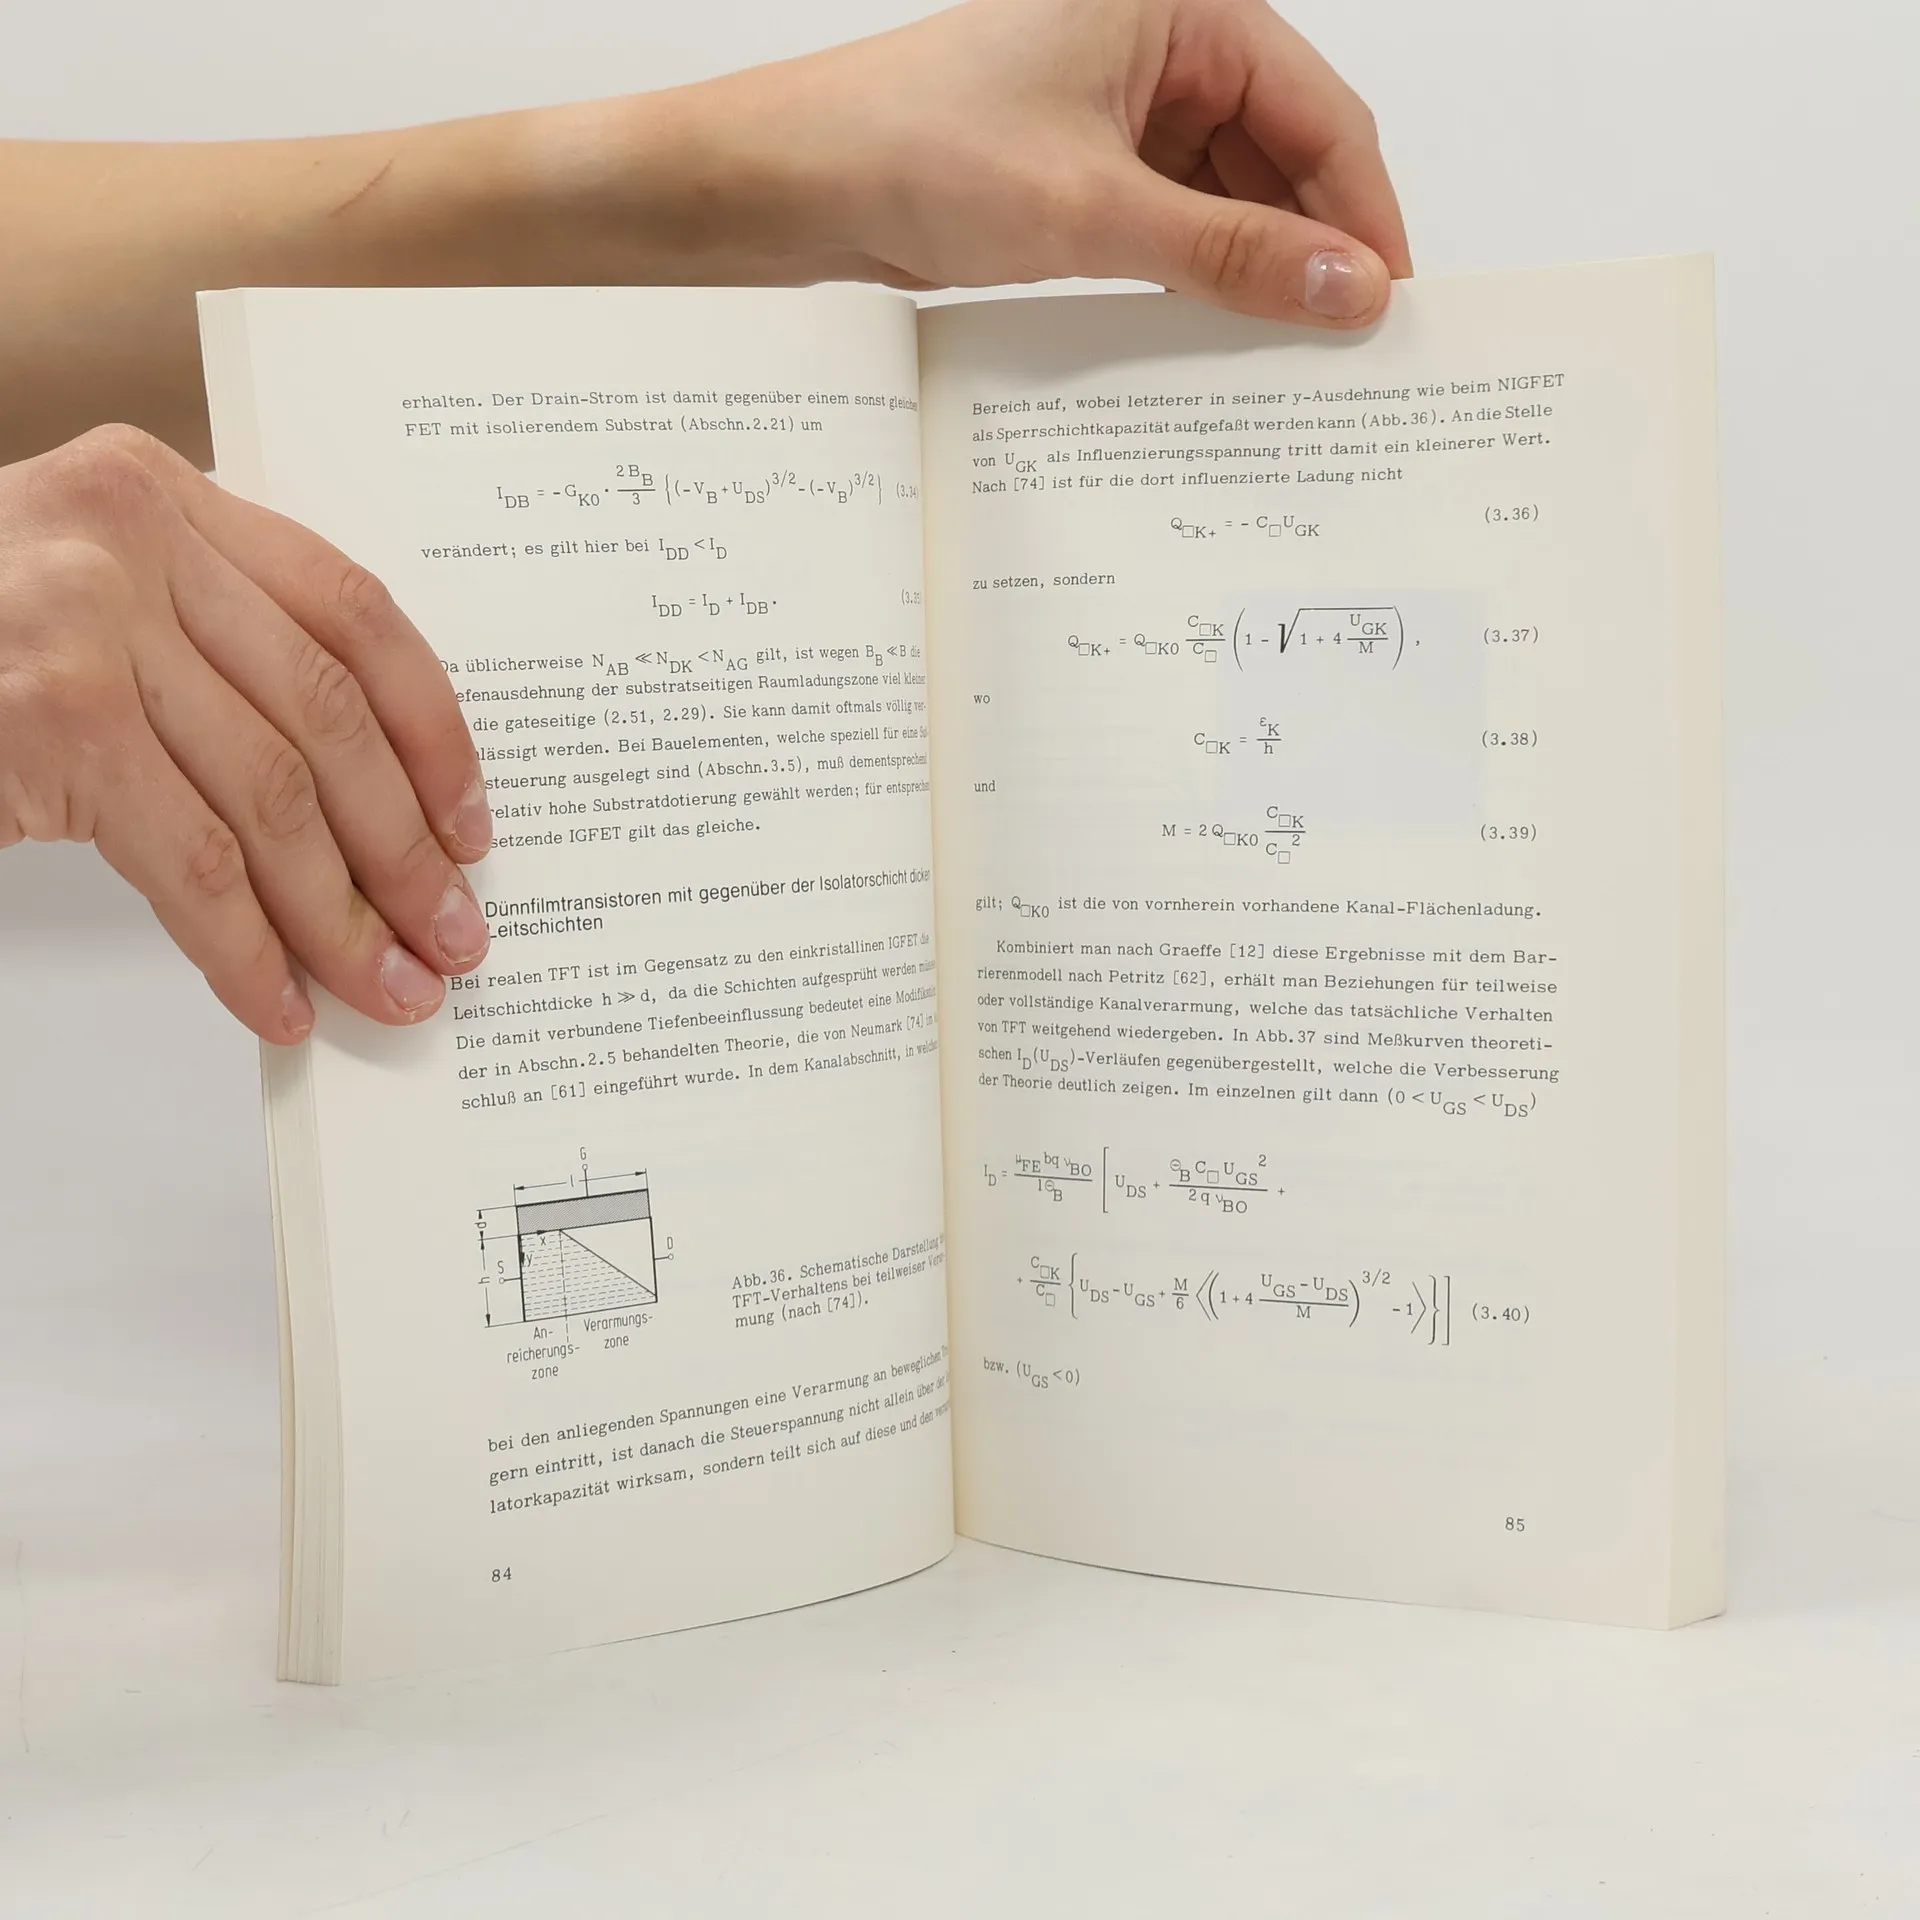 erhalten. Der Drain-Strom ist damit gegenüber einem sonst
FET mit isolierendem Substrat (Abschn.2.21) um
I_DB = - G_K0 · 2 B_B / 3 {(-V_B + U_DS)^3/2 - (-V_B)^3/2} (3.34
verändert; es gilt hier bei I_DD < I_D
I_DD = I_D + I_DB . (3.35
üblicherweise N_AB ≪ N_DK < N_AG gilt, ist wegen B_B ≪ B die
efenausdehnung der substratseitigen Raumladungszone viel
die gateseitige (2.51, 2.29). Sie kann damit oftmals völlig ver-
lässigt werden. Bei Bauelementen, welche speziell für eine
steuerung ausgelegt sind (Abschn.3.5), muß dementsprechend
relativ hohe Substratdotierung gewählt werden; für
setzende IGFET gilt das gleiche.
Dünnfilmtransistoren mit gegenüber der Isolatorschicht dicken
Leitschichten
Bei realen TFT ist im Gegensatz zu den einkristallinen IGFET die
Leitschichtdicke h ≫ d, da die Schichten aufgesprüht werden
Die damit verbundene Tiefenbeeinflussung bedeutet eine
der in Abschn.2.5 behandelten Theorie, die von Neumark [74]
schluß an [61] eingeführt wurde. In dem Kanalabschnitt, in
G
l
d
x
y
S
D
h
An- Verarmungs-
reicherungs- zone
zone
Abb.36. Schematische Darstellung
TFT-Verhaltens bei teilweiser
mung (nach [74]).
bei den anliegenden Spannungen eine Verarmung an beweglichen
gern eintritt, ist danach die Steuerspannung nicht allein über
latorkapazität wirksam, sondern teilt sich auf diese und den
84
Bereich auf, wobei letzterer in seiner y-Ausdehnung wie beim NIGFET
als Sperrschichtkapazität aufgefaßt werden kann (Abb.36). An die Stelle
von U_GK als Influenzierungsspannung tritt damit ein kleinerer Wert.
Nach [74] ist für die dort influenzierte Ladung nicht
Q_□K+ = - C_□ U_GK (3.36)
zu setzen, sondern
Q_□K+ = Q_□K0 C_□K / C_□ (1 - √(1 + 4 U_GK / M)) , (3.37)
wo
C_□K = ε_K / h (3.38)
und
M = 2 Q_□K0 C_□K / C_□^2 (3.39)
gilt; Q_□K0 ist die von vornherein vorhandene Kanal-Flächenladung.
Kombiniert man nach Graeffe [12] diese Ergebnisse mit dem Bar-
rierenmodell nach Petritz [62], erhält man Beziehungen für teilweise
oder vollständige Kanalverarmung, welche das tatsächliche Verhalten
von TFT weitgehend wiedergeben. In Abb.37 sind Meßkurven theoreti-
schen I_D(U_DS)-Verläufen gegenübergestellt, welche die Verbesserung
der Theorie deutlich zeigen. Im einzelnen gilt dann (0 < U_GS < U_DS)
I_D = μ_FE bq ν_BO / lΘ_B [ U_DS + Θ_B C_□ U_GS^2 / 2 q ν_BO +
+ C_□K / C_□ { U_DS - U_GS + M/6 ⟨(1 + 4 (U_GS - U_DS) / M)^3/2 - 1⟩}] (3.40)
bzw. (U_GS < 0)
85